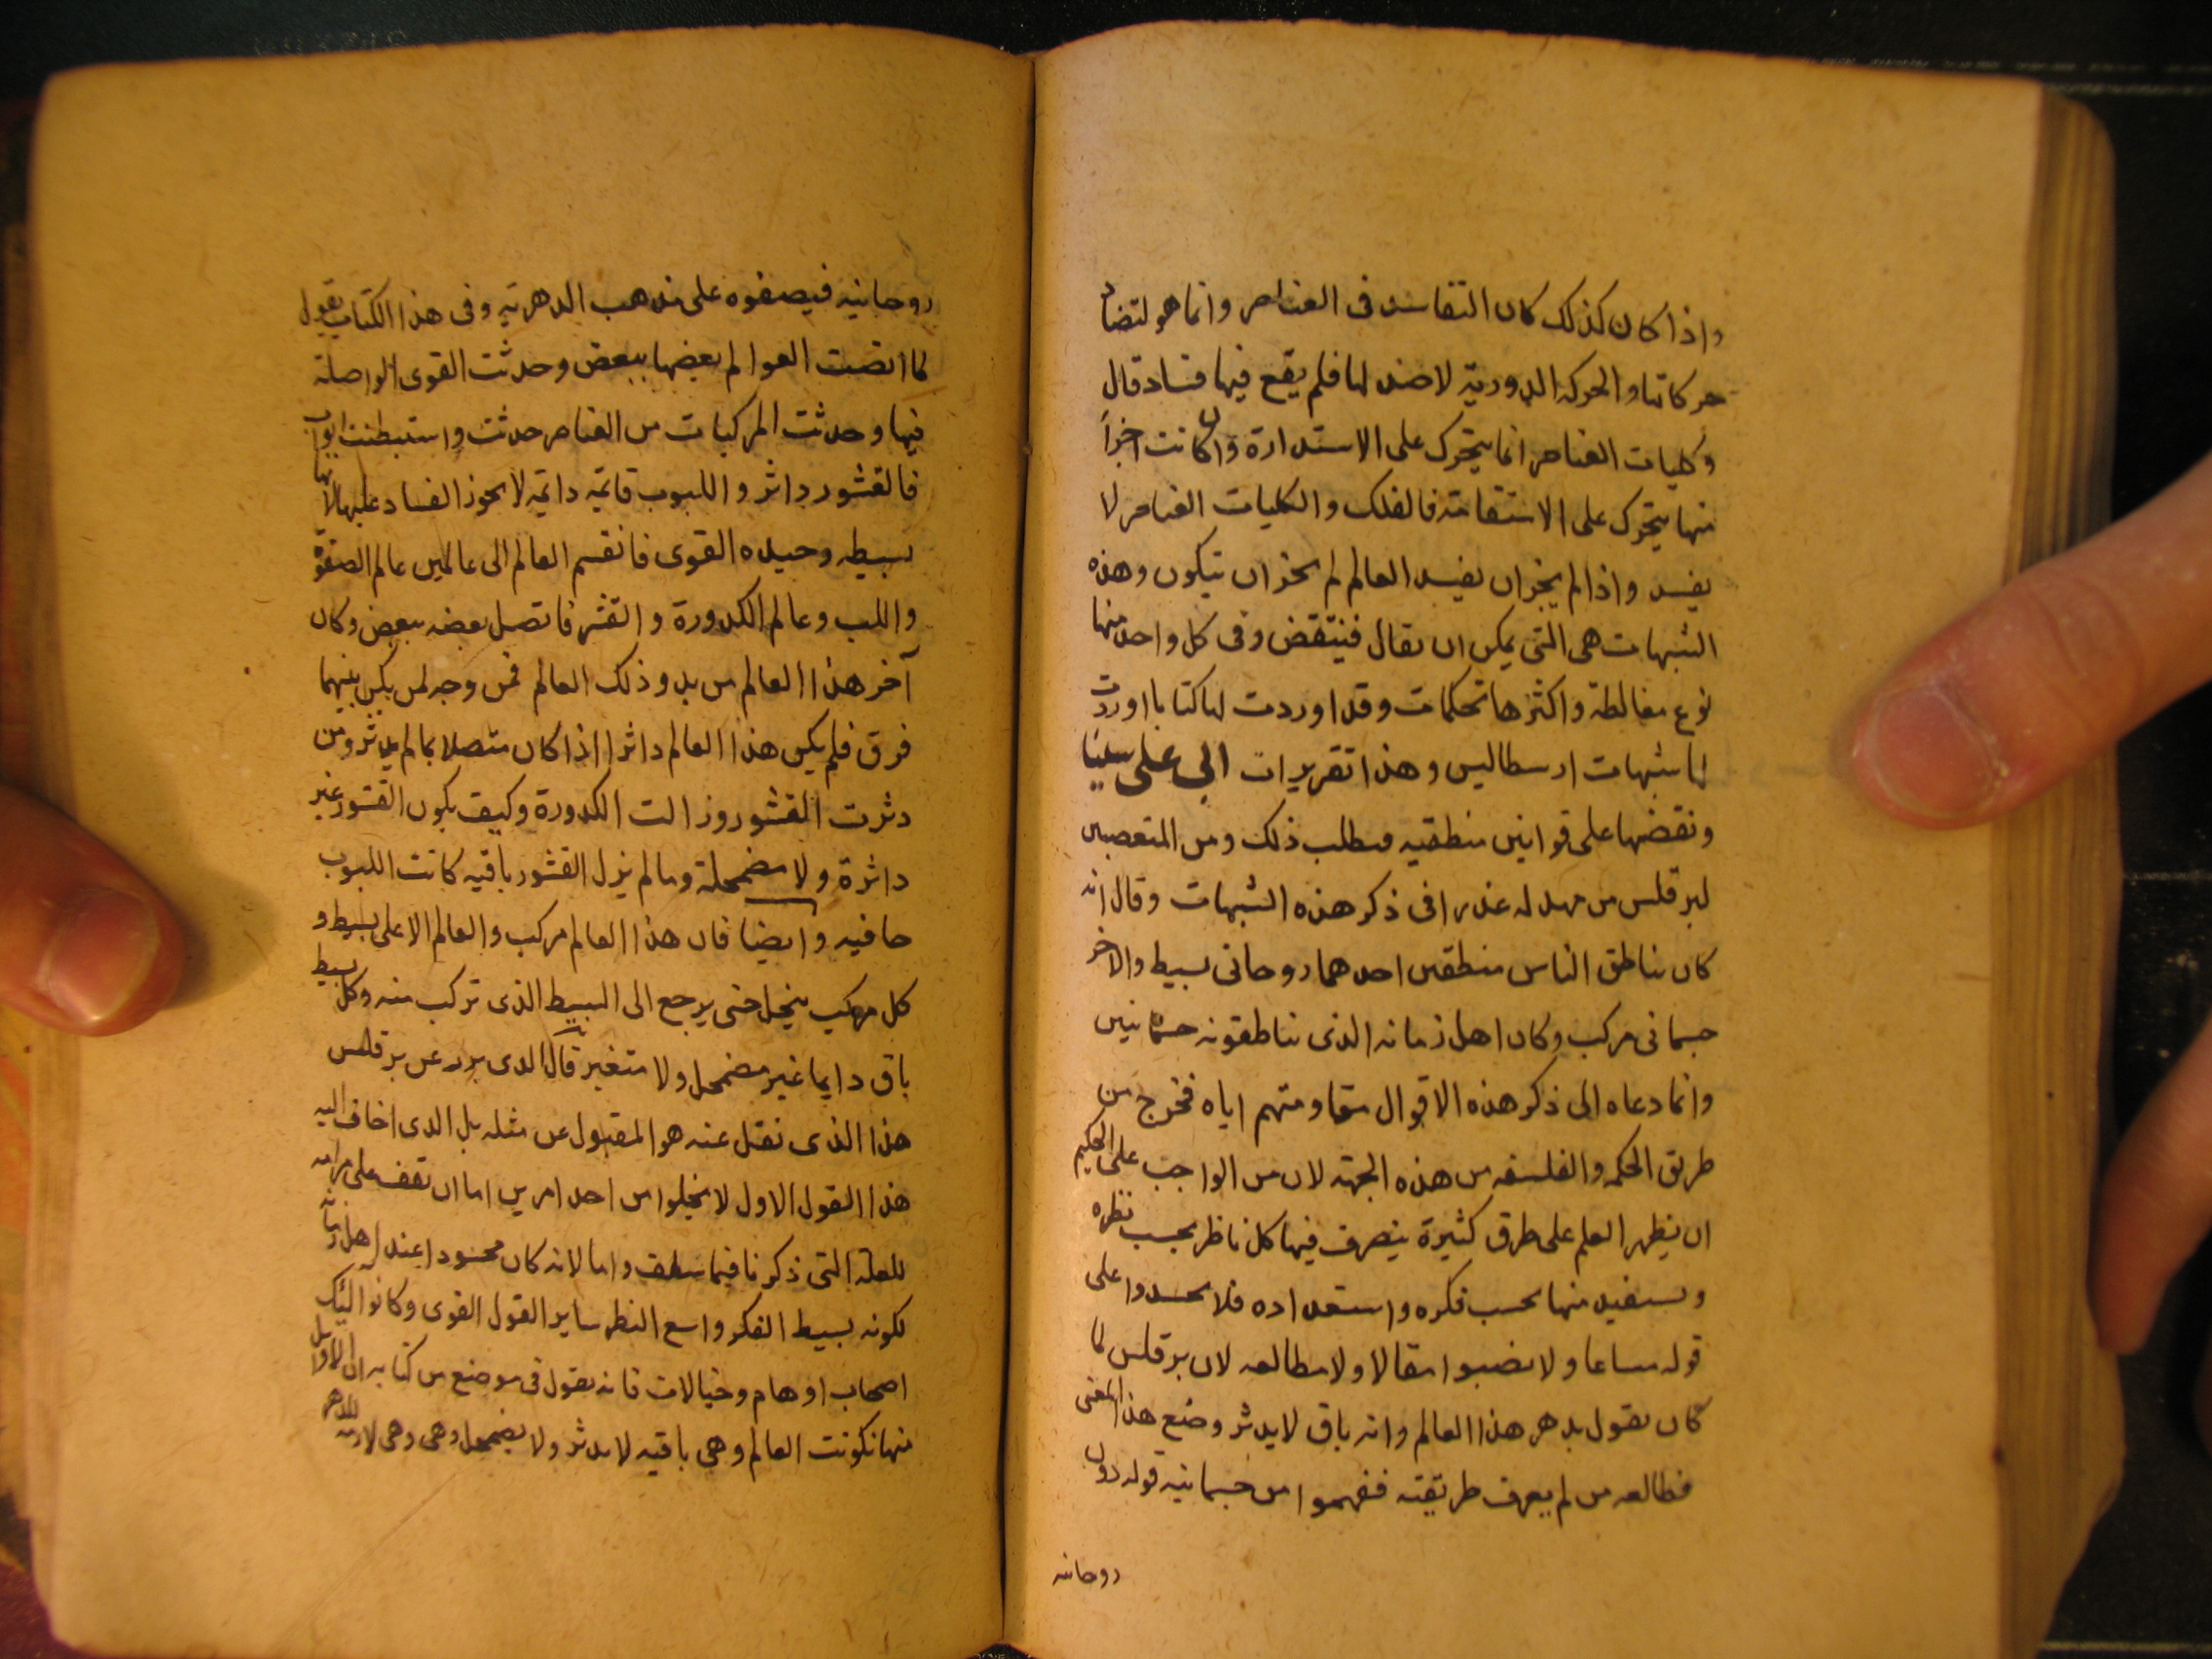 واذا كان كذلك كان التفاسد فى العناصر وانما هو لتضاد
حركاتها والحركه الدوريه لا ضد لها فلم يقع فيها فساد قال
وكليات العناصر انما يتحرك على الاستدارة وان كانت اجزأ
منها يتحرك على الاستقامته فالفلك والكليات العناصر لا
يفسد واذا لم يجز ان يفسد العالم لم يجز ان يتكون وهذه
الشبهات هى التى يمكن ان يقال فينتقض وفى كل واحد منها
نوع مغالطة واكثرها تحكمات وقد اوردت لها كتابا اوردت
لما شبهات ارسطاليس وهذا تقريرات ابى على سينا
ونقضها على قوانين منطقيه فيطلب ذلك ومن المتعصبين
لبرقلس من مهد له عذرا فى ذكر هذه الشبهات وقال انه
كان يناطق الناس منطقين احدهما روحانى بسيط والاخر
جسمانى مركب وكان اهل زمانه الذى يناطقونه جسمانيين
وانما دعاه الى ذكر هذه الاقوال مقاومتهم اياه فخرج من
طريق الحكمه والفلسفه من هذه الجهته لان من الواجب على الحكيم
ان يظهر العلم على طرق كثيرة يتصرف فيها كل ناظر بحسب نظره
ويستفيد منها بحسب فكره واستعداده فلا يجدوا على
قوله مساغا ولا يصيبوا مقالا ولا مطالعه لان برقلس لما
كان يقول بدهر هذا العالم وانه باق لا يدثر وضع هذا المعنى
فطالعه من لم يعرف طريقته ففهموا من جسمانيه قوله دون
روحانيه
روحانيه فيصفوه على مذهب الدهريه وفى هذا الكتاب يقول
لما اتصت العوالم بعضها ببعض وحدثت القوى الواصلة
فيها وحدثت المركبات من العناصر حدثت واستبطنت ابواب
فالقشور داثر واللبوب قائمه دائمه لا يجوز الفساد عليها لانها
بسيطه وحيده القوى فانقسم العالم الى عالمين عالم الصفوة
واللب وعالم الكدورة والقشر فاتصل بعضه ببعض وكان
آخر هذا العالم من بدو ذلك العالم فمن وجه لم يكن بينهما
فرق فلم يكن هذا العالم داثرا اذا كان متصلا بما لم يدثر ومن
دثرت القشور وزالت الكدورة وكيف يكون القشور غير
داثرة ولا مضمحلة وما لم يزل القشور باقيه كانت اللبوب
خافيه وايضا فان هذا العالم مركب والعالم الاعلى بسيط و
كل مركب ينحل حتى يرجع الى البسيط الذى تركب منه وكل بسيط
باق دايما غير مضمحل ولا متغير قال الذى يرد عن برقلس
هذا الذى نقل عنه هو المقبول عن مثله بل الذى اضاف اليه
هذا القول الاول لا يخلوا من احد امرين اما ان تقف على مرامه
للعله التى ذكرنا فيما سلف واما لانه كان محسودا عند اهل زمانه
لكونه بسيط الفكر واسع النظر ساير القول القوى وكانوا ائلك
اصحاب اوهام وخيالات فانه يقول فى موضع من كتابه ان الاوايل
منها تكونت العالم وهى باقيه لا يدثر ولا يضمحل وهى وهى لازمه للدهر